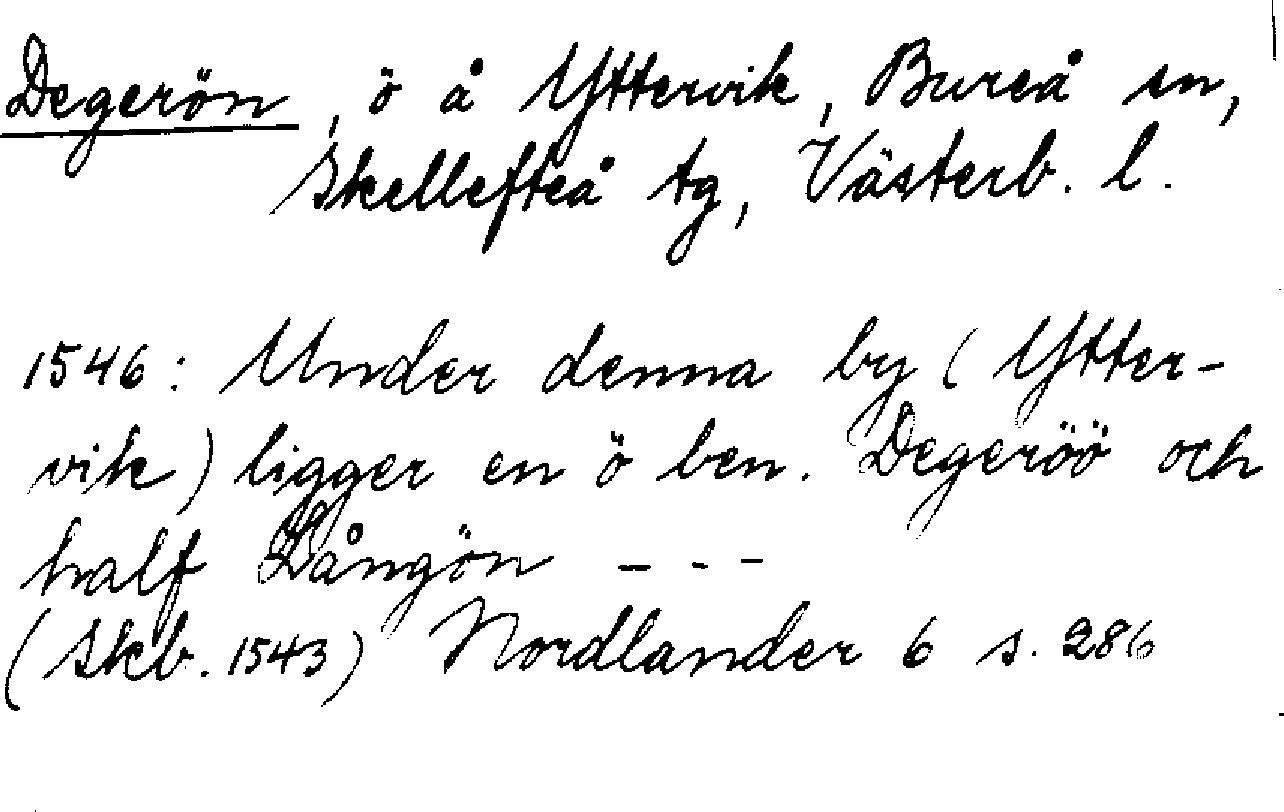 Degerön, ö å Yttervik, Bureå sn,
Skellefteå tg, Västerb. l.
1546: Under denna by (Ytter-
vik) ligger en ö ben. Degeröö och
half Långön - - -
(Skb. 1543) Nordlander 6 s. 286